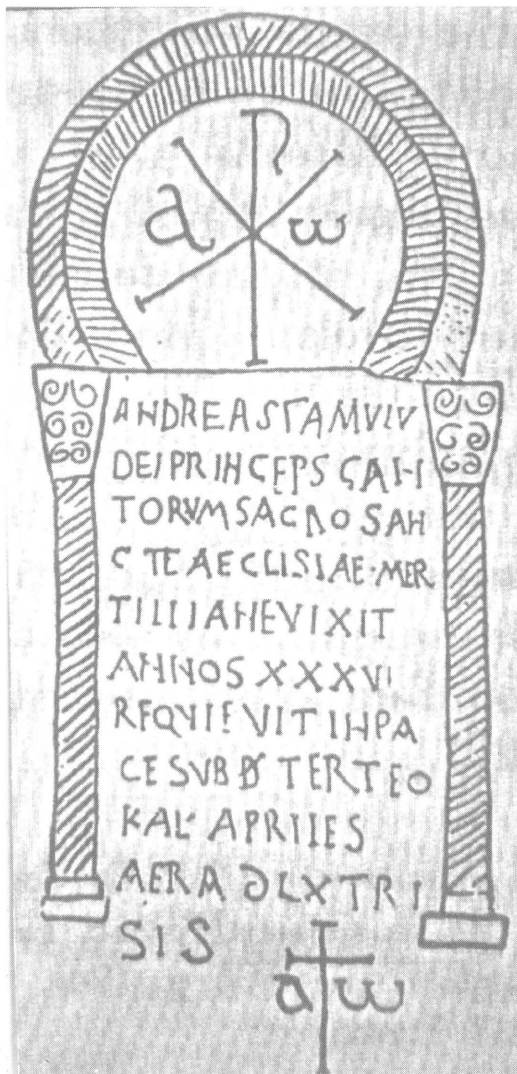 α ω
ANDREAS FAMULU
DEI PRINCEPS CAN
TORVM SACROSAN
CTE AECLISIAE · MER
TILLIANE VIXIT
ANNOS XXXVI
REQVIEVIT IN PA
CE SVB D TERTEO
KAL' APRILES
AERA DLXTRI
SIS
a ω